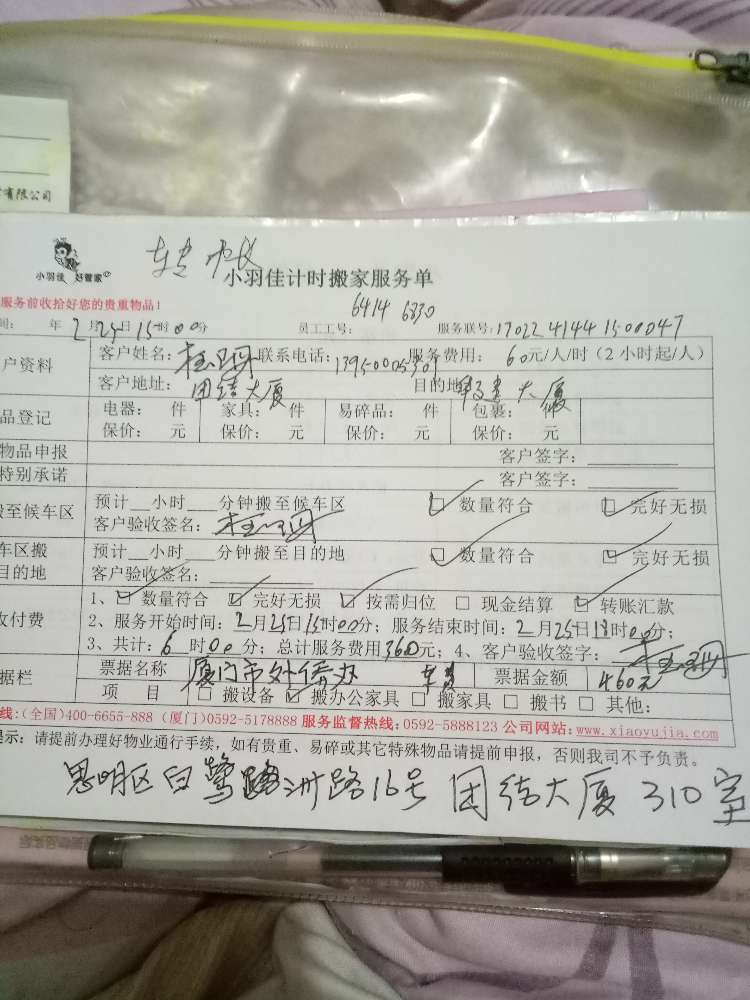 有限公司
转帐
小羽佳 好管家
小羽佳计时搬家服务单
服务前收拾好您的贵重物品!
6414 6830
间: 年 2月25日15时00分 员工工号: 服务联号:17022 4144 1500047
户资料 客户姓名: 联系电话: 服务费用: 60元/人/时(2小时起/人)
客户地址: 团结大厦 目的地 大厦
品登记 电器: 件 家具: 件 易碎品: 件 包裹: 件
保价: 元 保价: 元 保价: 元 保价: 元
物品申报 客户签字:
特别承诺 客户签字:
搬至候车区 预计__小时__分钟搬至候车区 ☑ 数量符合 ☑ 完好无损
客户验收签名:
车区搬 预计__小时__分钟搬至目的地 ☑ 数量符合 ☑ 完好无损
目的地 客户验收签名:
1、☑ 数量符合 ☑ 完好无损 ☑ 按需归位 □ 现金结算 ☑ 转账汇款
收付费 2、服务开始时间:2月25日15时00分;服务结束时间:2月25日18时00分;
3、共计:6时00分;总计服务费用360元;4、客户验收签字:
据栏 票据名称 厦门市外侨办 票据金额 460元
项 目 □ 搬设备 ☑ 搬办公家具 □ 搬家具 □ 搬书 □ 其他:
线:(全国)400-6655-888 (厦门)0592-5178888 服务监督热线:0592-5888123 公司网站:www.xiaoyujia.com
提示:请提前办理好物业通行手续,如有贵重、易碎或其它特殊物品请提前申报,否则我司不予负责。
思明区白鹭洲路16号 团结大厦 310室